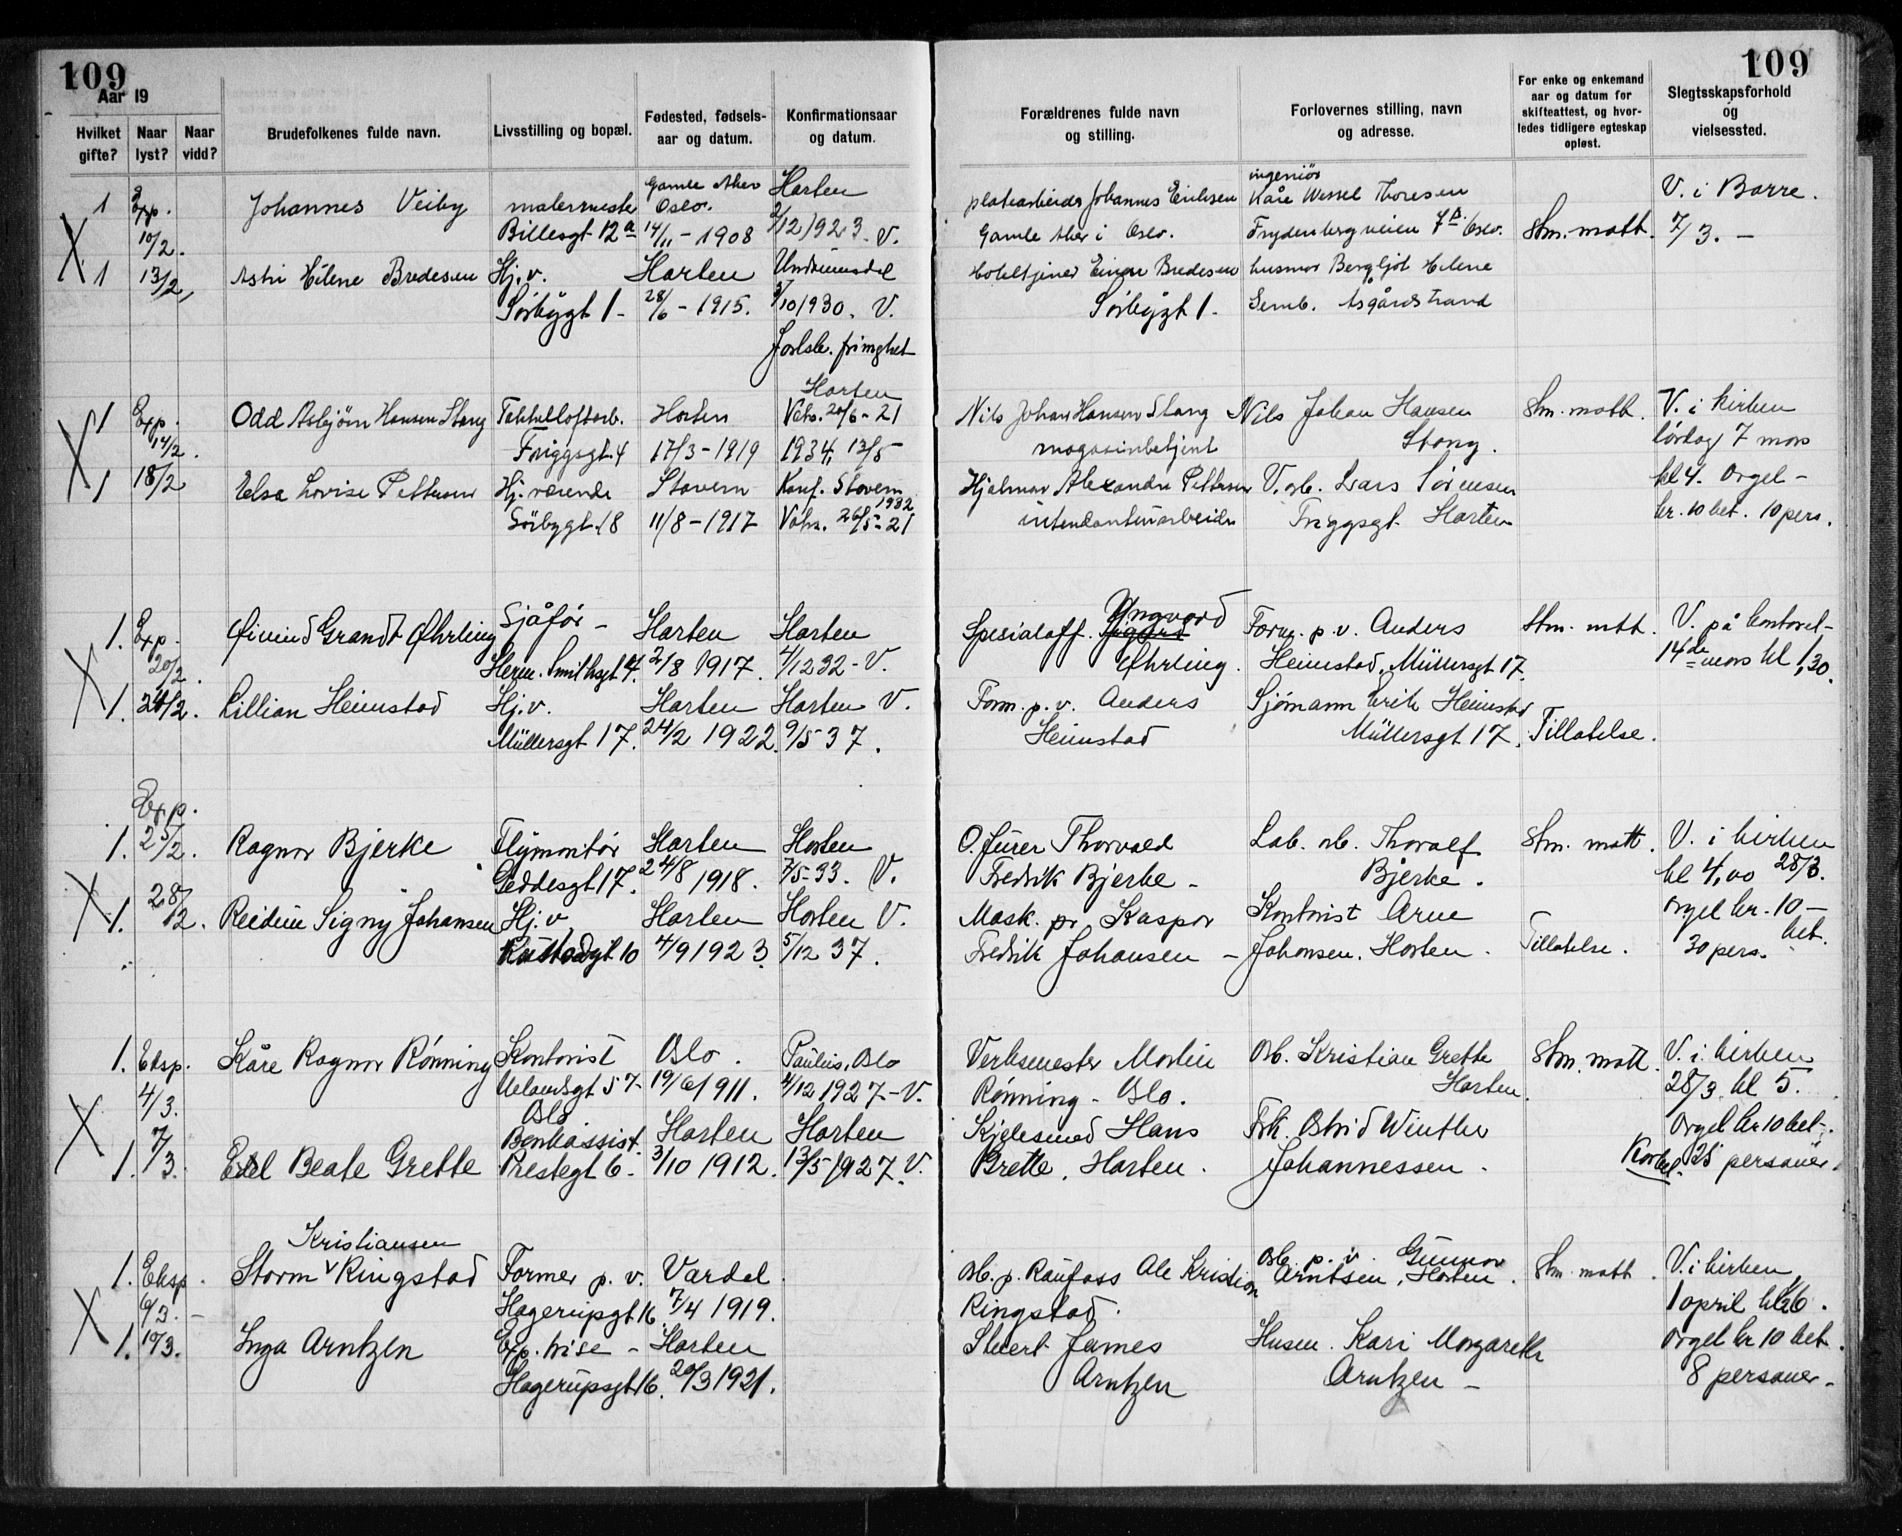 109
109
Aar 19
Hvilket gifte?
Naar lyst?
Naar vidd?
Brudefolkenes fulde navn.
Livsstilling og bopæl.
Fødested, fødsels-
aar og datum.
Konfirmationsaar
og datum.
Forældrenes fulde navn
og stilling.
Forlovernes stilling, navn
og adresse.
For enke og enkemand
aar og datum for
skifteattest, og hvor-
ledes tidligere egteskap
opløst.
Slegtsskapsforhold
og
vielsessted.
1 Exp. 10/2. Johannes Veiby
Gamle Aker Horten
Oslo.
Billesgt 12a 14/11 - 1908 V.
platearbeider Johannes Erichsen
Gamle Aker i Oslo.
ingeniør
Kåre Wessel Thoresen
Frydenbergveien Oslo.
Stm. mott.
V. i Borre.
7/3. -
X
1 13/2, Astri Helene Bredesen Hj.v. Horten
Sørbygt 1 - 28/6 - 1915. 1930. V.
Einar Bredesen
Sørbygt 1.
husmor Bergljot Helene
Semb. Åsgårdstrand
Horten
1 Exp. 14/2. Odd Asbjørn Hansen Stang Horten Vaks. 20/6 - 21
Friggsgt. 4 17/3 - 1919 1934, 13/5
Nils Johan Hansen Stang
magasinbetjent
Nils Johan Hansen
Stang.
Stm. mott.
V. i kirken
lørdag 7 mars
kl 4. Orgel -
kr. 10 bet. 10 pers.
X
1 18/2 Else Lovise Pettersen Hj. værende Stavern Konf. Stavern
1932
Sørbygt. 18 11/8 - 1917 Vaks. 26/5 - 21
Hjalmar Alexander Pettersen
intendanturarbeider
V. arb. Lars Sørensen
Friggsgt. Horten
1. Exp. 20/2. Øivind Grandt Øhrling Sjåfør - Horten Horten
Herm. Smithsgt 4. 2/8 1917. 4/12 32 - V.
Yngvard
Spesialoff.
Øhrling.
Form. p.v. Anders
Heimstad, Müllersgt 17.
Stm. mtt.
V. på kontoret -
14de mars kl 1,30.
X
1. 24/2. Lillian Heimstad Hj.v. Horten Horten V.
Müllersgt 17. 24/2 1922. 9/5 37.
Form. p.v. Anders
Heimstad
Sjømann Erik Heimstad
Müllersgt 17.
Tillatelse.
Exp.
1. 25/2. Ragnar Bjerke Flymontør Horten Horten
Geddesgt 17. 24/8 1918. 7/5 - 33. V.
O. fürer Thorvald
Fredrik Bjerke -
Lab. arb. Thoralf
Bjerke.
Stm. mott.
V. i kirken
kl 4,00 28/3.
Orgel kr. 10 -
bet.
30 pers.
X
1. 28/2. Reidun Signy Johansen Hj.v. Horten Horten V.
10 4/9 1923. 5/12 37.
Mask. pr. Kaspar
Fredrik Johansen -
Kontorist Arne
Johansen. Horten.
Tillatelse.
1. Eksp. 4/3. Kåre Ragnar Rønning Kontorist Oslo. Paulus, Oslo
Uelandsgt 57 - 19/6 1911. 4/12 1927 - V.
Oslo
Verksmester Martin
Rønning - Oslo.
Arb. Kristian Grette
Horten.
Stm. mott.
V. i kirken
28/3 kl 5.
Orgel kr 10 bet -
25 personer.
X
1. 7/3. Beate Grette Bankassist. Horten Horten
Prestegt 6 - 3/10 1912. 13/5 1927. V.
Kjelesmed Hans
Grette, Horten.
Frk. Astrid Winther
Johannessen.
Kristiansen
1. Eksp. 6/3. - Storm V Ringstad Former p.v. Vardal
Hagerupsgt 16. 7/4 1919.
Arb. p. Raufoss Ole Kristian
Ringstad.
Arb. p.v. Gunnar
Arntsen, Horten.
Stm. mott.
V. i kirken
1 april kl 6.
Orgel kr 10 bet.
8 personer -
X
1. 10/3. Inga Arntzen Exp. trise - Horten
Hagerupsgt 16. 20/3 1921.
James
Arntzen
Husm. Kari Margarethe
Arntzen -